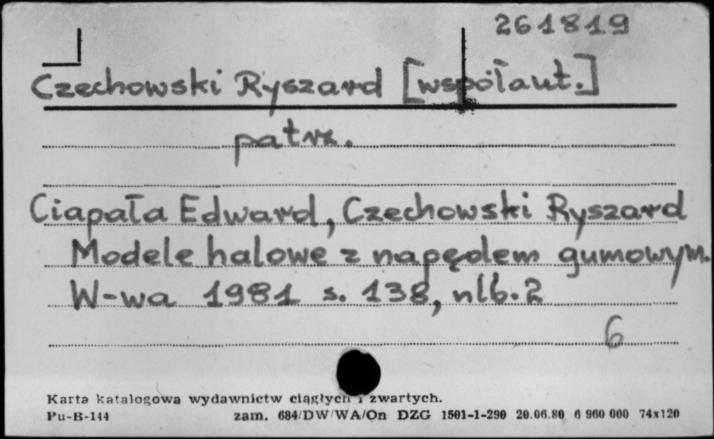 261819
Czechowski Ryszard [współaut.]
patrz.
Ciapała Edward, Czechowski Ryszard
Modele halowe z napędem gumowym.
W-wa 1981 s. 138, nlb. 2
6
Karta katalogowa wydawnictw ciągłych i zwartych.
Pu-B-144 zam. 684/DW/WA/On DZG 1501-1-290 20.06.80 6 960 000 74x120